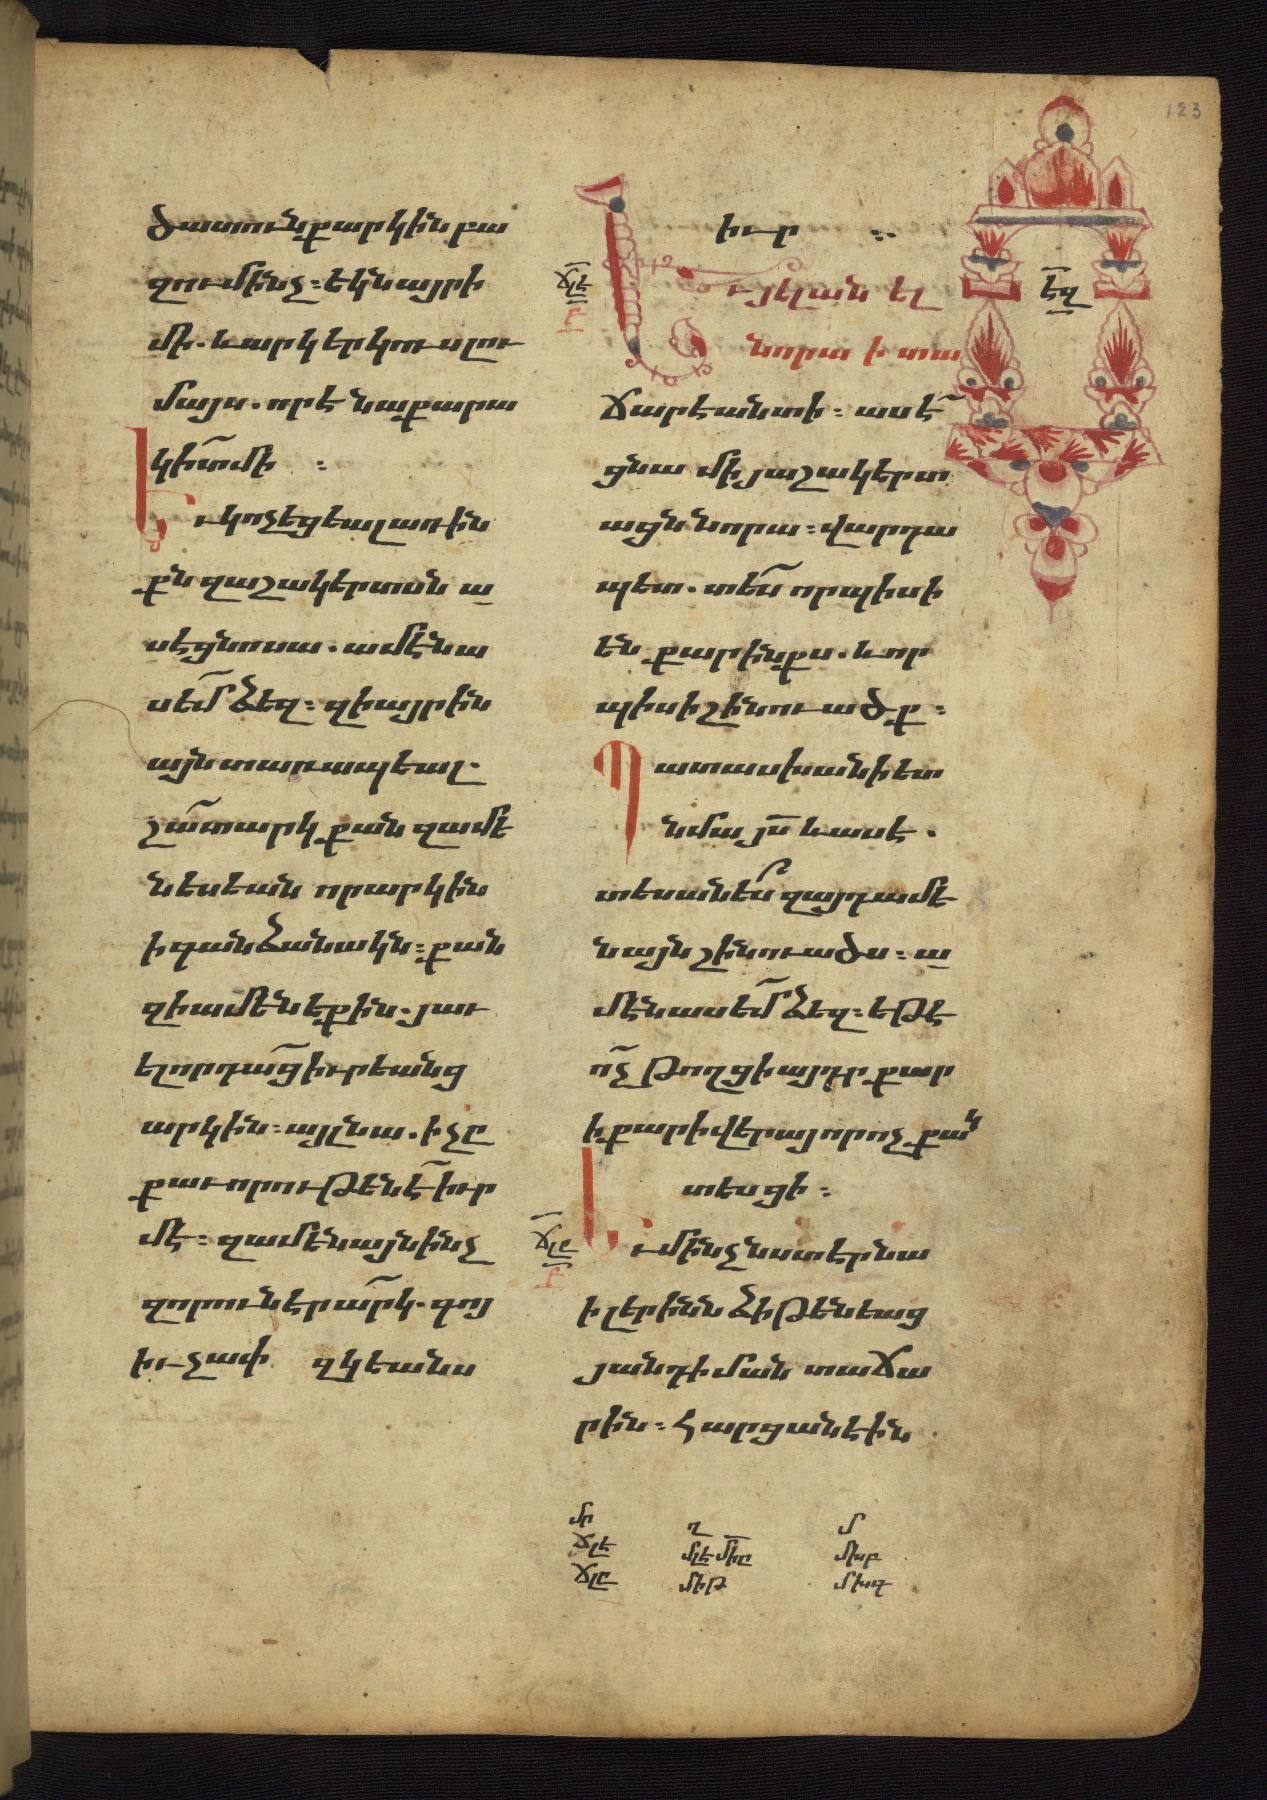 123
ծատունք արկին բա
զում ինչ։ եկն այրի
մի. և արկ երկու լու
մայս. որ է նաքարա
կիտ մի ։
Եւ կոչեցեալ առ ին
քն զաշակերտսն ա
սէ ցնոսա. ամէն ա
սեմ ձեզ։ զի այրին
այն տառապեալ.
շատ արկ քան զամե
նեսեան որ արկին
ի գանձանակն։ քան
զի ամենեքին. յաւ
ելորդաց իւրեանց
արկին։ այլ նա. ի չը
քաւորութենէ իւր
մէ։ զամենայն ինչ
զոր ունէր արկ. գոյ
իւ չափ զկեանս
իւր ։.
ճլէ
բ
Եւ յելանել
նորա ի տա
ճարէ անտի։ ասէ
ցնա մի յաշակերտ
ացն նորա։ վարդա
պետ. տես որպիսի
են քարինքս. և որ
պիսի շինուածք։
Պատասխանի ետ
նմա յս և ասէ.
տեսանես զայդ ամե
նայն շինուածս։ ա
մէն ասեմ ձեզ։ եթէ
ոչ թողցի այդր քար
ի քարի վերայ որ ոչ քակ
տեսցի։
ճլը
բ
Եւ մինչ նստէր նա
ի լերինն ձիթենեաց
յանդիման տաճա
րին։ հարցանէին
մր ղ մ
ճլէ
ճլը